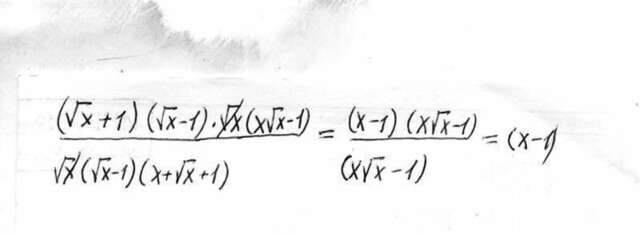 (√x+1)(√x-1)·√x(x√x-1) / √x(√x-1)(x+√x+1) = (x-1)(x√x-1) / (x√x-1) = (x-1)